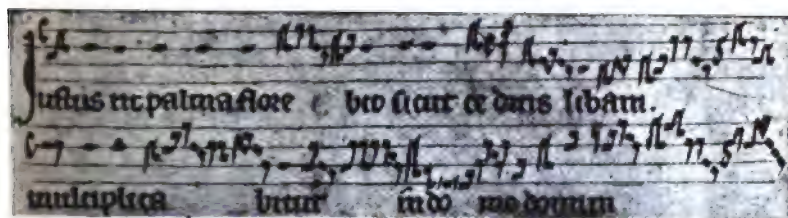 Justus ut palma flore bit sicut ce drus libani.
multiplica bitur in do mo domini